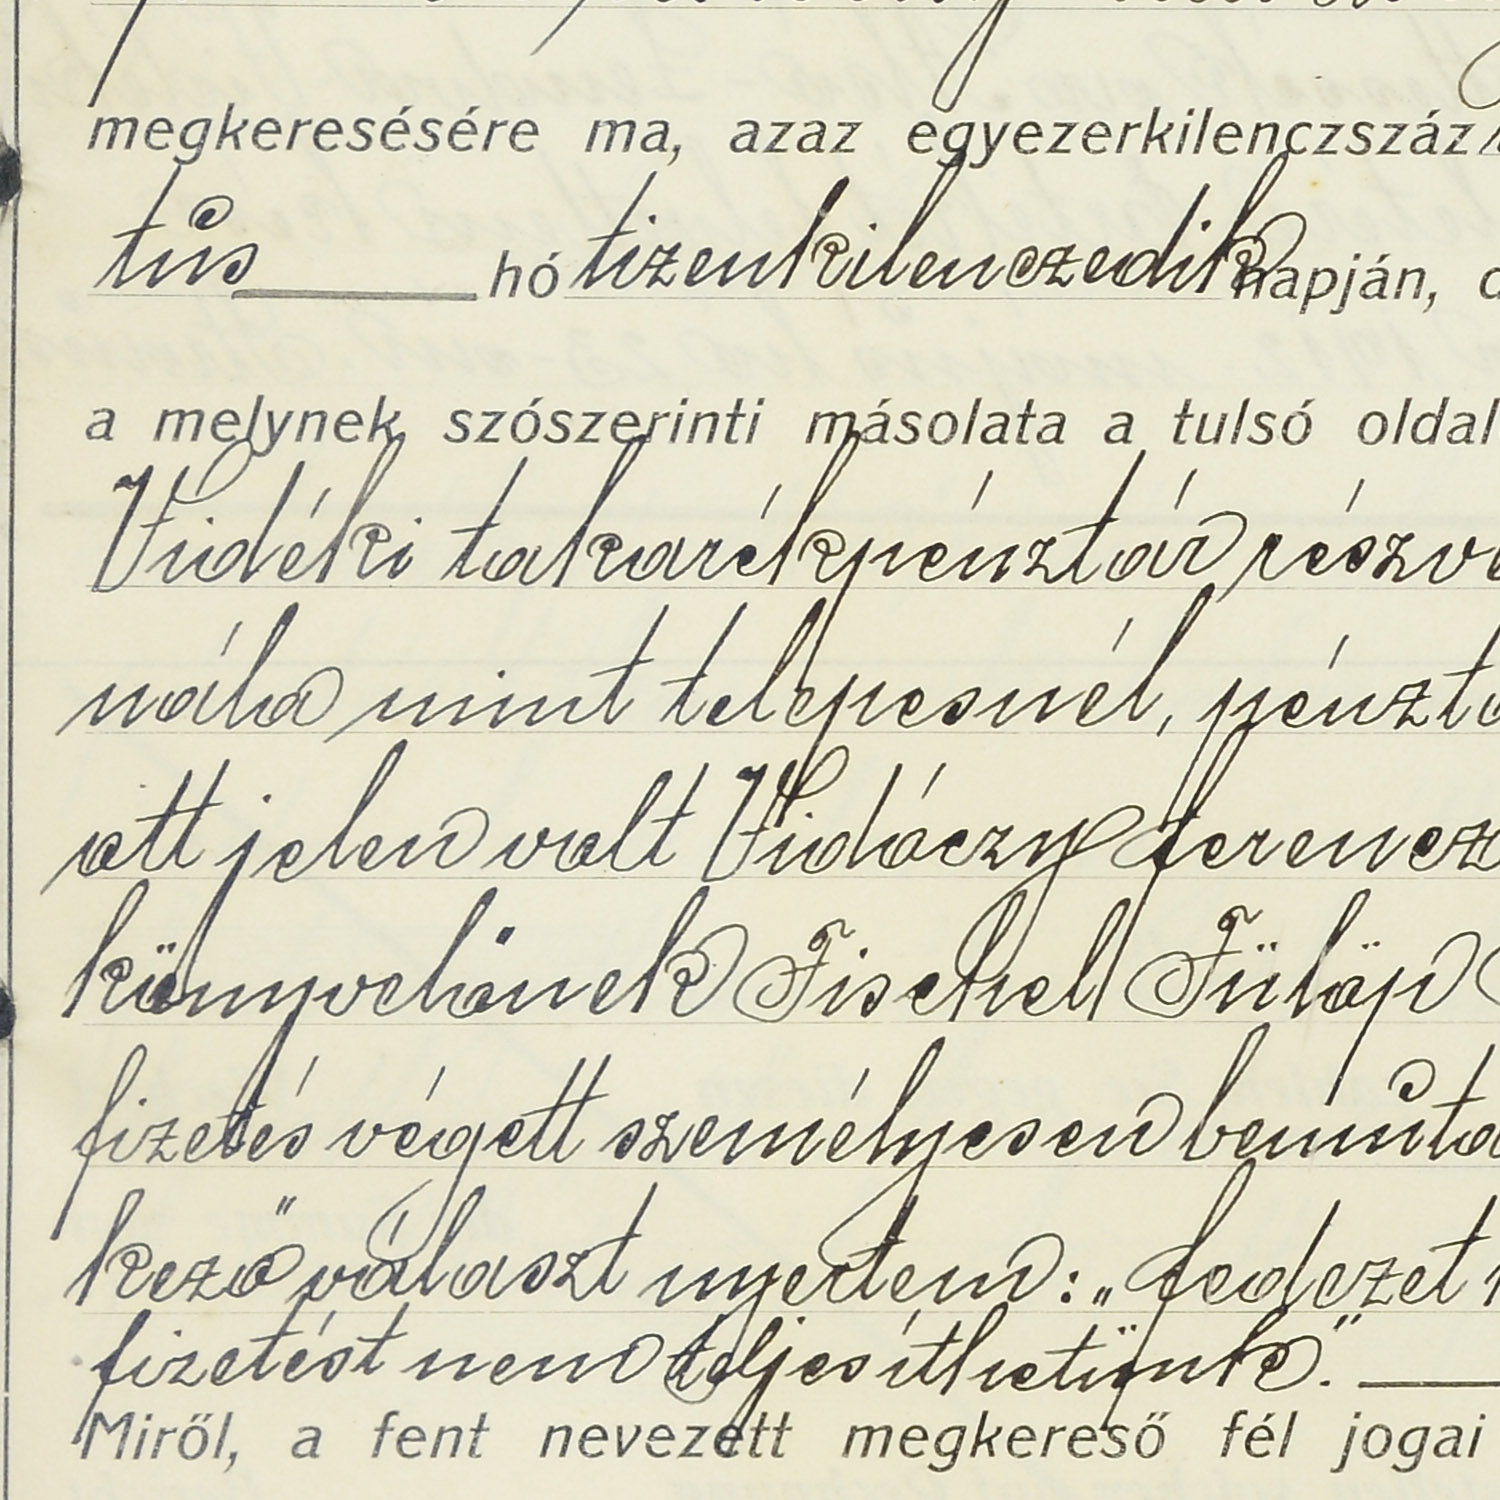 megkeresésére ma, azaz egyezerkilenczszáz
tus hó tizenkilenczedik napján,
a melynek szószerinti másolata a tulsó oldal
Vidéki takarékpénztár részv
nála mint telepesnél, pénzt
ott jelen volt Vidóczy Ferencz
könyvelőnek Fischel Fülöp
fizetés végett személyesen bemuta
kező választ nyertem: „fedezet
fizetést nem teljesíthetünk."
Miről, a fent nevezett megkereső fél jogai